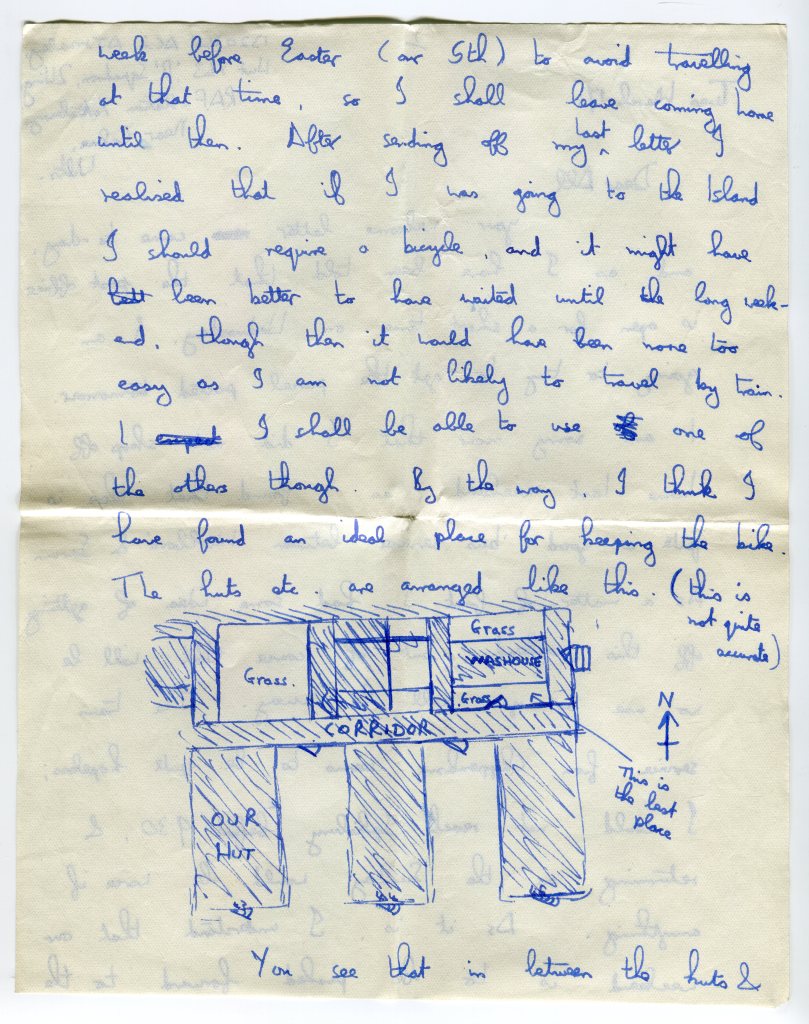 week before Easter (our 5th) to avoid travelling
at that time, so I shall leave coming home
until then. After sending off my last letter I
realised that if I was going to the Island
I should require a bicycle, and it might have
been better to have waited until the long week-
end, though then it would have been none too
easy as I am not likely to travel by train.
I shall be able to use one of
the others though. By the way, I think I
have found an ideal place for keeping the bike.
The huts etc are arranged like this. (this is
not quite
accurate)
Grass
WASHOUSE
Grass.
Grass
CORRIDOR
N
This is
the best
place
OUR
HUT
You see that in between the huts &